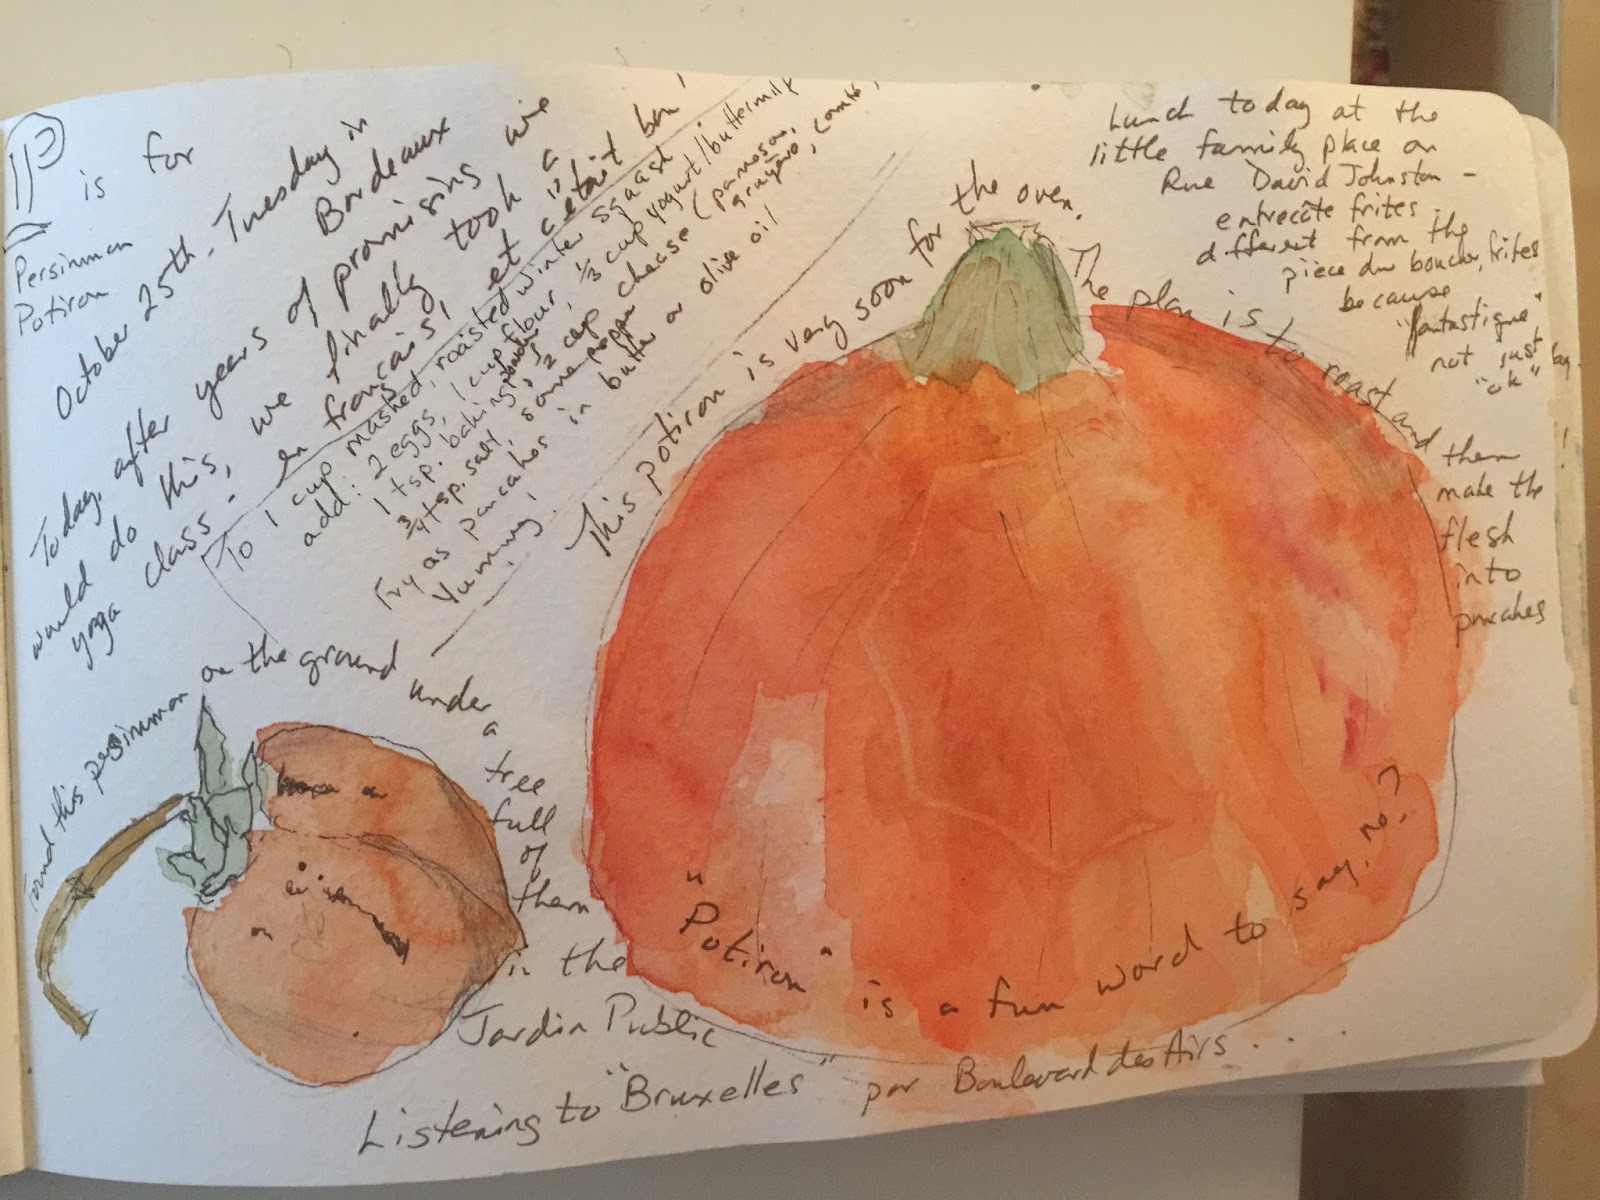 P is for
Persimmon
Potiron
October 25th - Tuesday in
Bordeaux
Today, after years of promising we
would do this, we finally took a
yoga class - en français, et c'était bon!
To 1 cup mashed, roasted winter squash
add: 2 eggs, 1 cup flour, 1/3 cup yogurt/buttermilk
1 tsp. baking powder, 1/2 cup cheese (parmesan,
gruyère, comté,
3/4 tsp. salt, some pepper
Fry as pancakes in butter or olive oil
Yummy!
This potiron is very soon for the oven.
The plan is to roast and then
make the
flesh
into
pancakes!
Lunch today at the
little family place on
Rue David Johnston -
entrecôte frites -
different from the
pièce du boucher, frites
because
"fantastique"
not just
"ok"
found this persimmon on the ground under
a
tree
full
of
them
in the
Jardin Public
"Potiron" is a fun word to say, no?
Listening to "Bruxelles" par Boulevard des Airs...